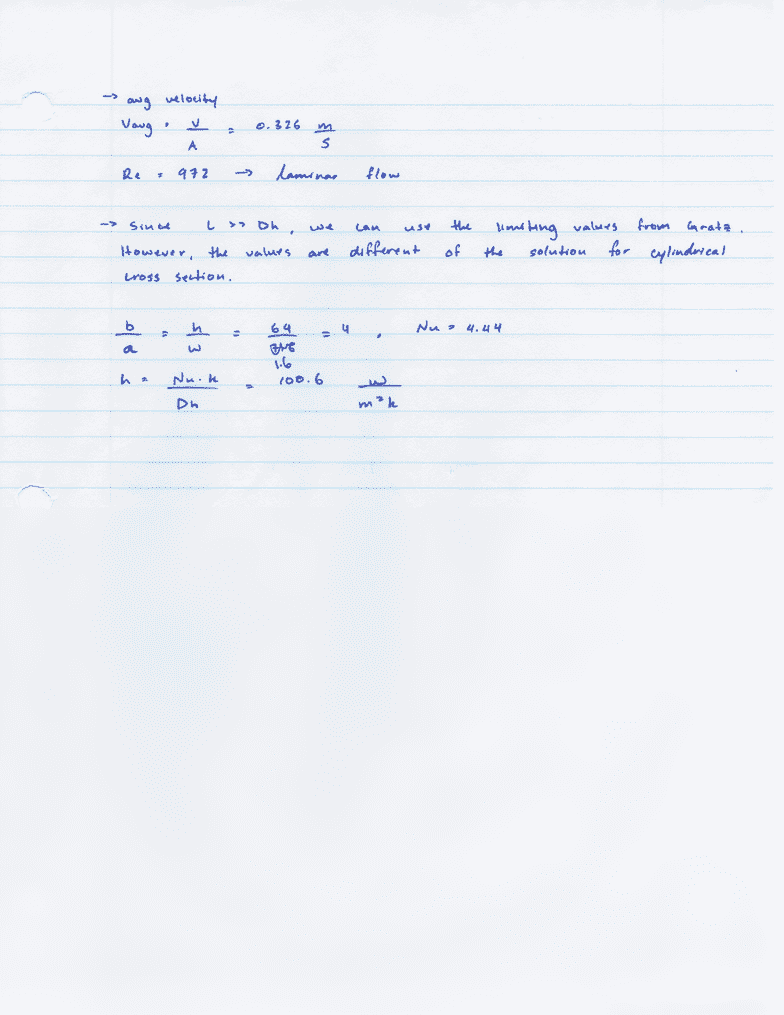 → avg velocity
Vavg = V / A = 0.326 m / s
Re = 972 → laminar flow
→ Since L >> Dh, we can use the limiting values from Gratz.
However, the values are different of the solution for cylindrical
cross section.
b / a = h / w = 64 / 1.6 = 4 , Nu = 4.44
h = Nu·k / Dh = 100.6 W / m²k